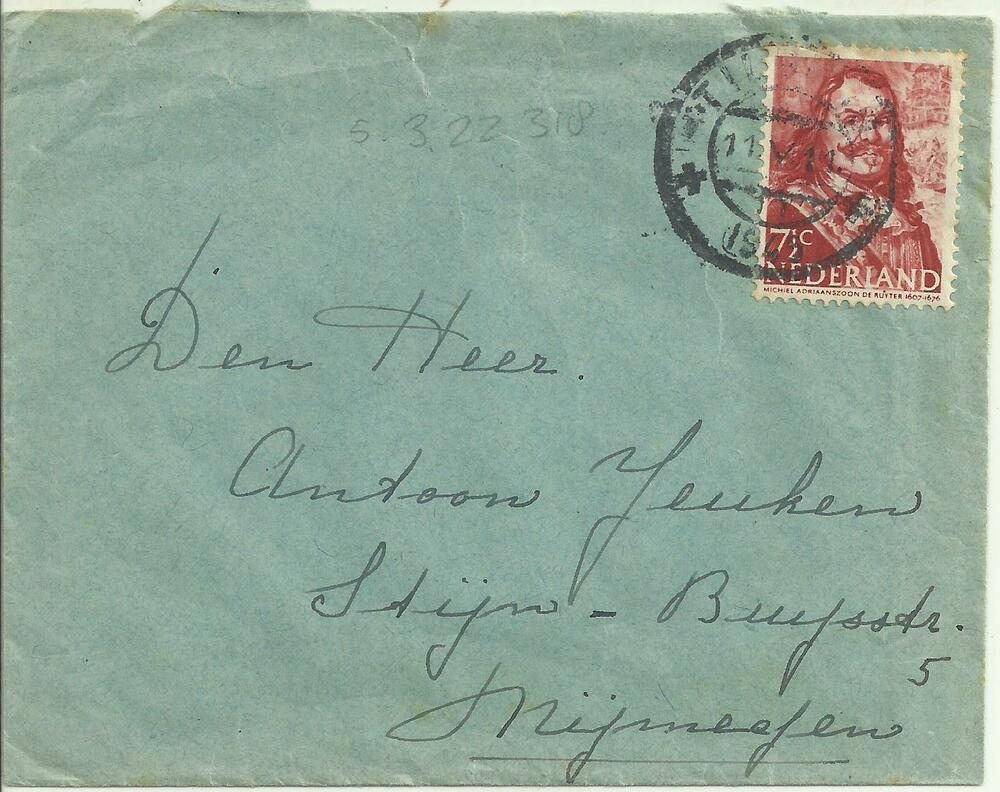 5.3.22 318
11 V 1
1943
7½C
NEDERLAND
MICHIEL ADRIAANSZOON DE RUYTER 1607-1676
Den Heer.
Antoon Jeuken
Stijn - Buysstr.
5
Nijmegen